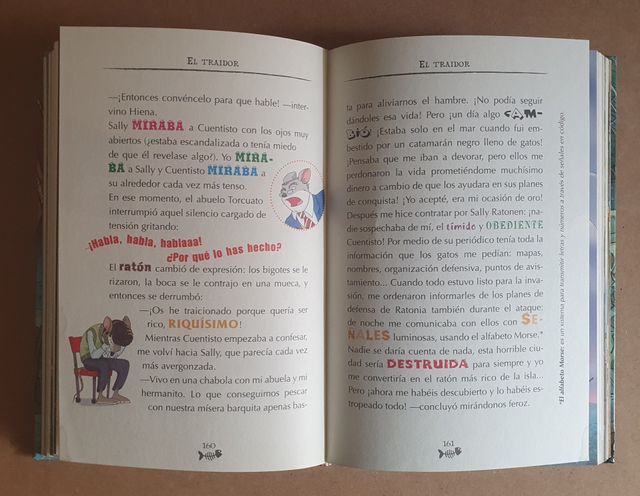 EL TRAIDOR
—¡Entonces convéncelo para que hable! —inter-
vino Hiena.
Sally MIRABA a Cuentisto con los ojos muy
abiertos (¿estaba escandalizada o tenía miedo
de que él revelase algo?). Yo MIRA-
BA a Sally y Cuentisto MIRABA a
su alrededor cada vez más tenso.
En ese momento, el abuelo Torcuato
interrumpió aquel silencio cargado de
tensión gritando:
—¡Habla, habla, hablaaa!
¿Por qué lo has hecho?
El ratón cambió de expresión: los bigotes se le
rizaron, la boca se le contrajo en una mueca, y
entonces se derrumbó:
—¡Os he traicionado porque quería ser
rico, RIQUÍSIMO!
Mientras Cuentisto empezaba a confesar,
me volví hacia Sally, que parecía cada vez
más avergonzada.
—Vivo en una chabola con mi abuela y mi
hermanito. Lo que conseguimos pescar
con nuestra mísera barquita apenas bas-
160
EL TRAIDOR
ta para aliviarnos el hambre. ¡No podía seguir
dándoles esa vida! Pero ¡un día algo CAM-
BIÓ! ¡Estaba solo en el mar cuando fui em-
bestido por un catamarán negro lleno de gatos!
¡Pensaba que me iban a devorar, pero ellos me
perdonaron la vida prometiéndome muchísimo
dinero a cambio de que los ayudara en sus planes
de conquista! ¡Yo acepté, era mi ocasión de oro!
Después me hice contratar por Sally Ratonen: ¡na-
die sospechaba de mí, el tímido y OBEDIENTE
Cuentisto! Por medio de su periódico tenía toda la
información que los gatos me pedían: mapas,
nombres, organización defensiva, puntos de avis-
tamiento... Cuando todo estuvo listo para la inva-
sión, me ordenaron informarles de los planes de
defensa de Ratonia también durante el ataque:
de noche me comunicaba con ellos con SE-
ÑALES luminosas, usando el alfabeto Morse.*
Nadie se daría cuenta de nada, esta horrible ciu-
dad sería DESTRUIDA para siempre y yo
me convertiría en el ratón más rico de la isla...
Pero ¡ahora me habéis descubierto y lo habéis es-
tropeado todo! —concluyó mirándonos feroz.
*El alfabeto Morse: es un sistema para transmitir letras y números a través de señales en código.
161